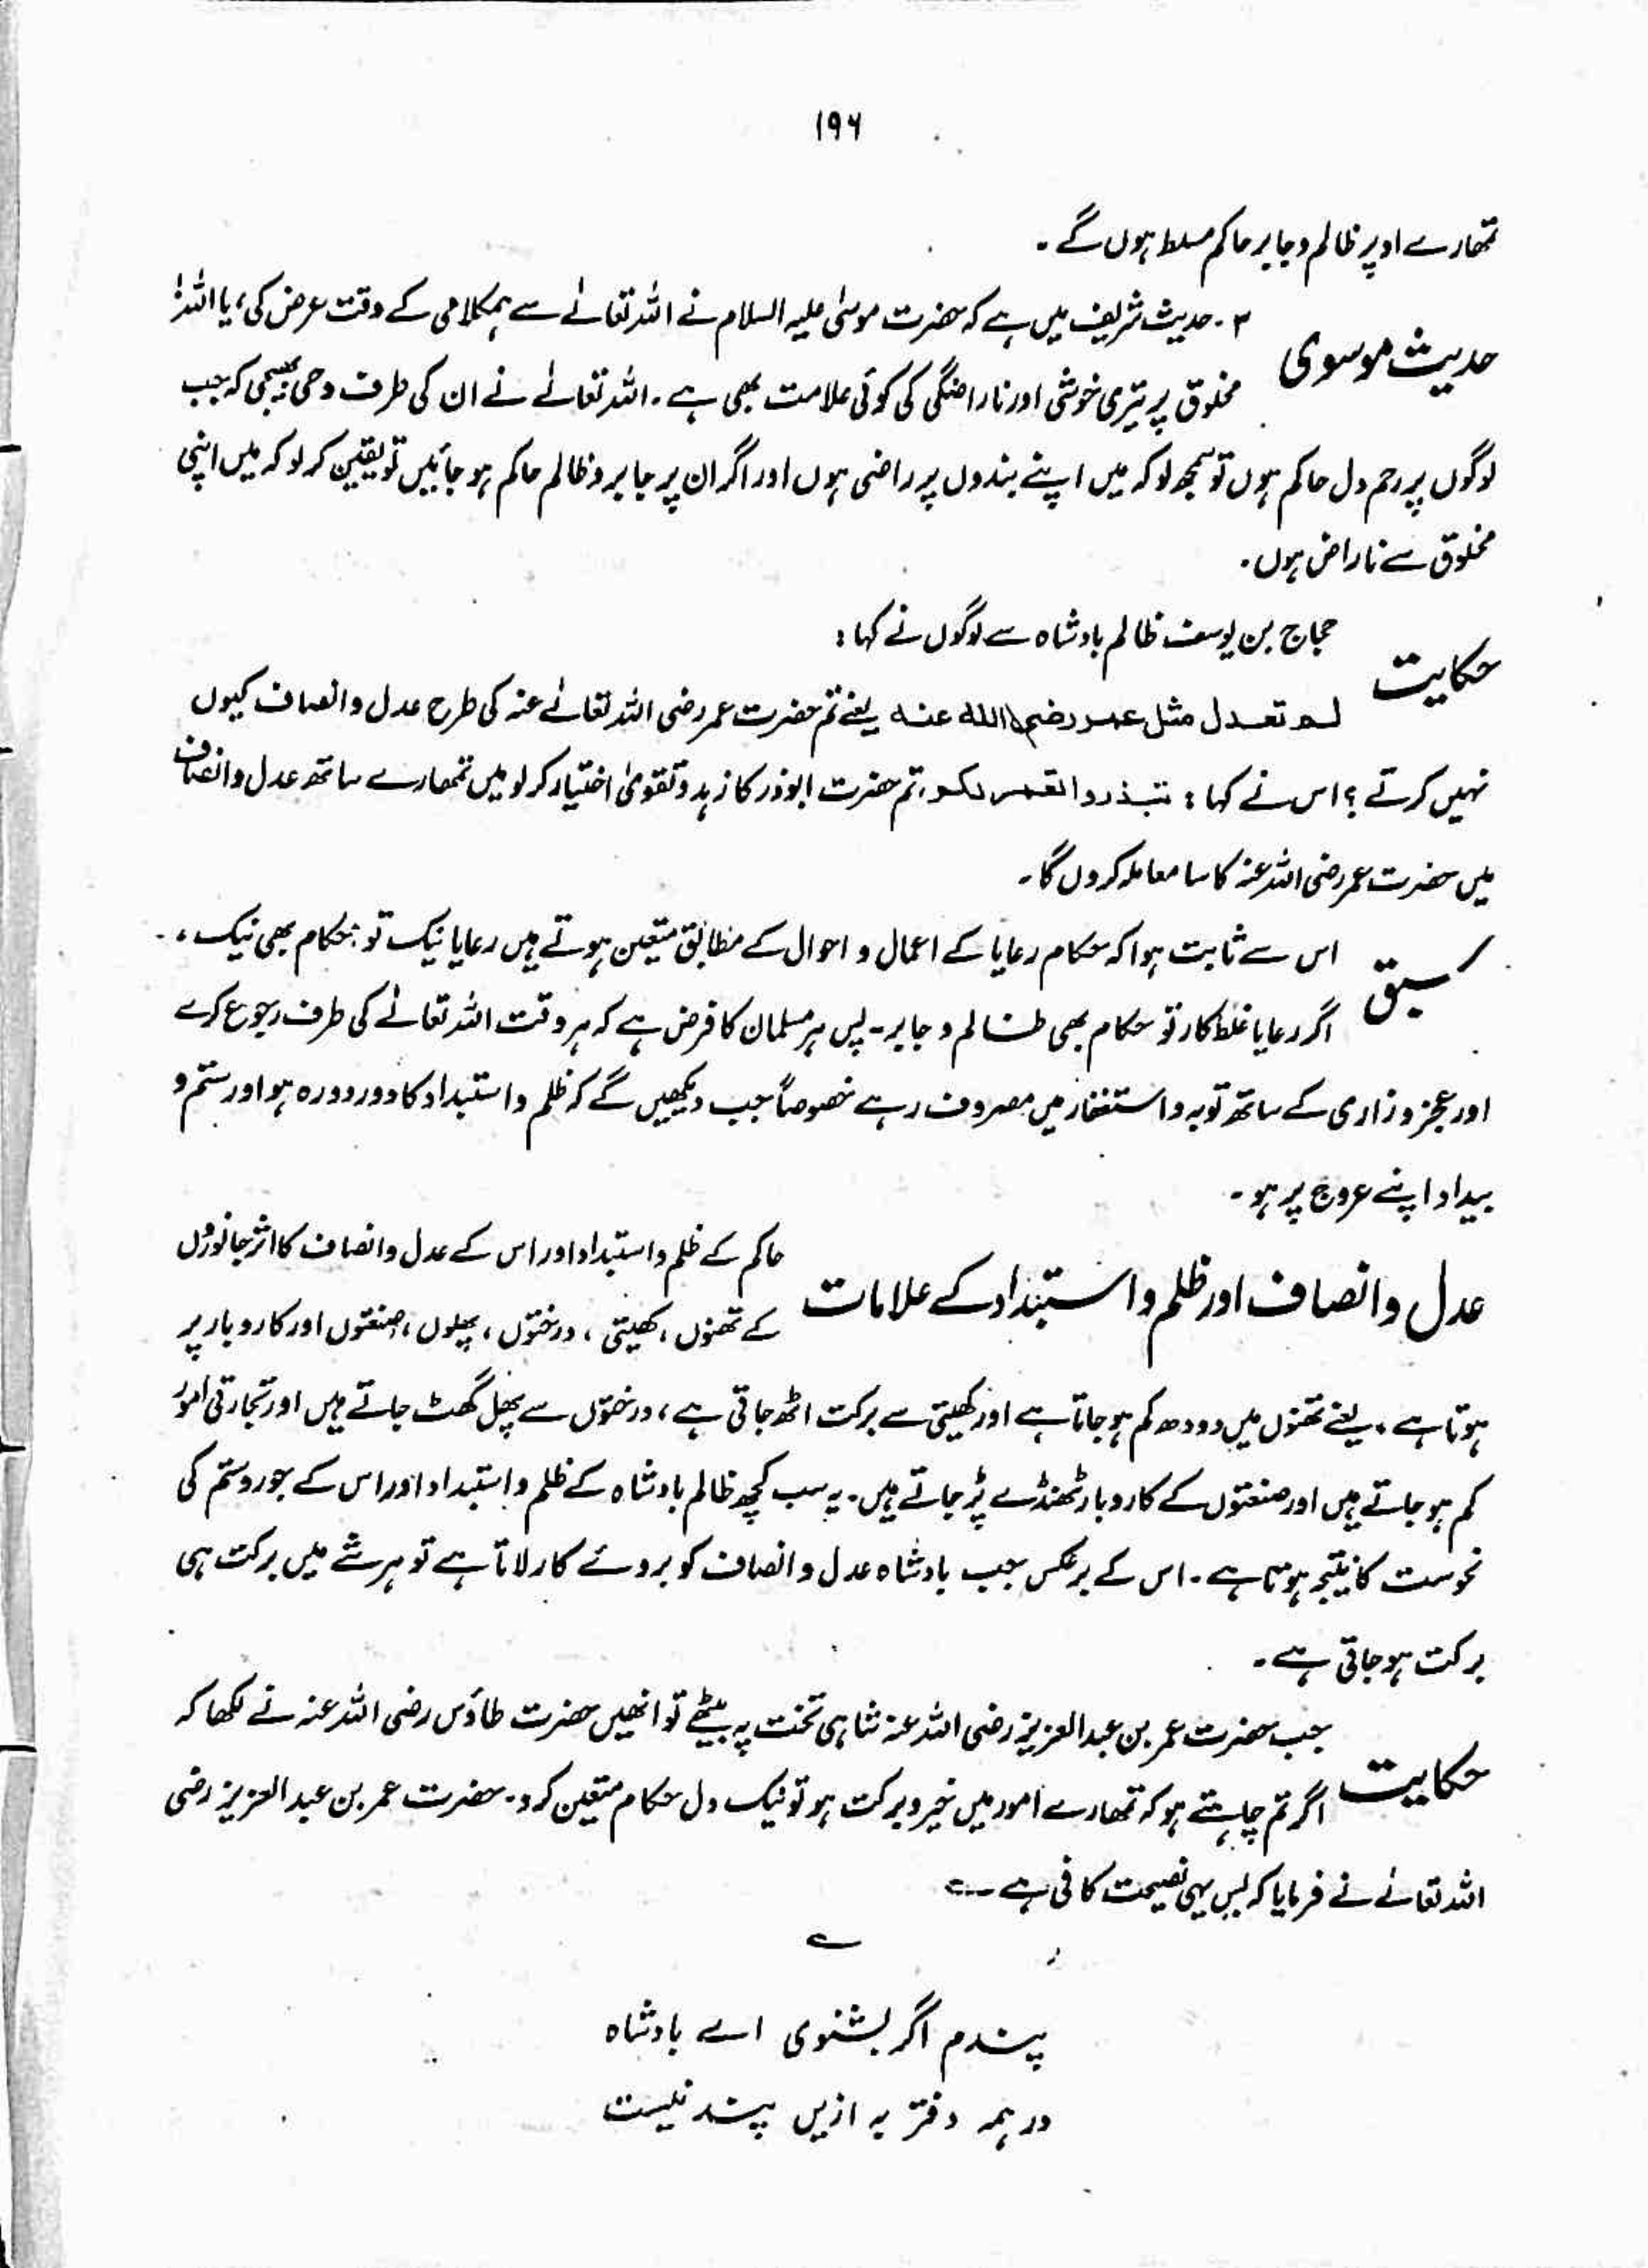 ۱۹۶
تمھارے اوپر ظالم و جابر حاکم مسلط ہوں گے۔
حدیث موسوی
۳۔ حدیث شریف میں ہے کہ حضرت موسٰی علیہ السلام نے اللہ تعالٰے سے ہمکلامی کے وقت عرض کی، یا اللہ!
مخلوق پر تیری خوشی اور ناراضگی کی کوئی علامت بھی ہے۔ اللہ تعالٰے نے ان کی طرف وحی بھیجی کہ جب
لوگوں پر رحم دل حاکم ہوں تو سمجھ لو کہ میں اپنے بندوں پر راضی ہوں اور اگر ان پر جابر و ظالم حاکم ہو جائیں تو یقین کر لو کہ میں اپنی
مخلوق سے ناراض ہوں۔
حکایت
حجاج بن یوسف ظالم بادشاہ سے لوگوں نے کہا:
لم تعدل مثل عمر رضی اللہ عنہ یعنے تم حضرت عمر رضی اللہ تعالٰے عنہ کی طرح عدل و انصاف کیوں
نہیں کرتے؟ اس نے کہا: تبذروا اتعمر لکم، تم حضرت ابوذر کا زہد و تقوٰی اختیار کر لو میں تمھارے ساتھ عدل و انصاف
میں حضرت عمر رضی اللہ عنہ کا سا معاملہ کروں گا۔
سبق
اس سے ثابت ہوا کہ حکام رعایا کے اعمال و احوال کے مطابق متعین ہوتے ہیں رعایا نیک تو حکام بھی نیک،
اگر رعایا غلط کار تو حکام بھی ظالم و جابر۔ پس ہر مسلمان کا فرض ہے کہ ہر وقت اللہ تعالٰے کی طرف رجوع کرے
اور عجز و زاری کے ساتھ توبہ و استغفار میں مصروف رہے خصوصاً جب دیکھیں گے کہ ظلم و استبداد کا دور دورہ ہو اور ستم و
بیداد اپنے عروج پر ہو۔
عدل و انصاف اور ظلم و استبداد کے علامات
حاکم کے ظلم و استبداد اور اس کے عدل و انصاف کا اثر جانوروں
کے تھنوں، کھیتی، درختوں، پھلوں، صنعتوں اور کاروبار پر
ہوتا ہے۔ یعنے تھنوں میں دودھ کم ہو جاتا ہے اور کھیتی سے برکت اٹھ جاتی ہے، درختوں سے پھل گھٹ جاتے ہیں اور تجارتی امور
کم ہو جاتے ہیں اور صنعتوں کے کاروبار ٹھنڈے پڑ جاتے ہیں۔ یہ سب کچھ ظالم بادشاہ کے ظلم و استبداد اور اس کے جور و ستم کی
نحوست کا نتیجہ ہوتا ہے۔ اس کے برعکس جب بادشاہ عدل و انصاف کو بروئے کار لاتا ہے تو ہر شے میں برکت ہی
برکت ہو جاتی ہے۔
حکایت
جب حضرت عمر بن عبد العزیز رضی اللہ عنہ شاہی تخت پہ بیٹھے تو انھیں حضرت طاؤس رضی اللہ عنہ نے لکھا کہ
اگر تم چاہتے ہو کہ تمھارے امور میں خیر و برکت ہو تو نیک دل حکام متعین کرو۔ حضرت عمر بن عبد العزیز رضی
اللہ تعالٰے نے فرمایا کہ بس یہی نصیحت کافی ہے ؎
؎
پندم اگر بشنوی اے بادشاہ
در ہمہ دفتر بہ ازیں پند نیست